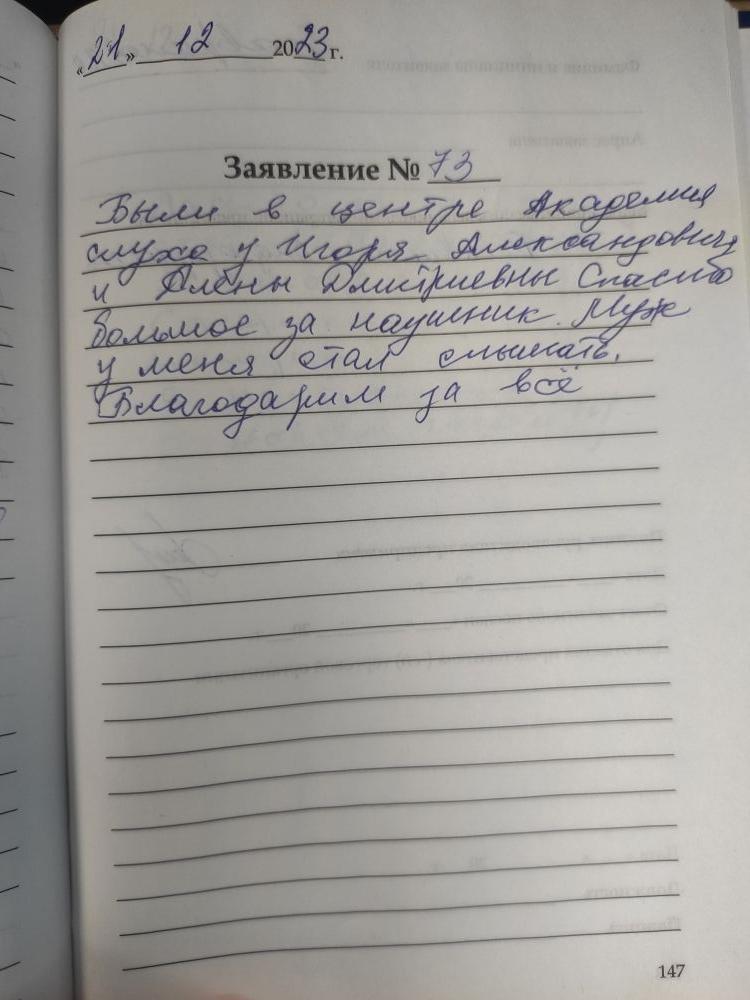 «21» 12 2023 г.
Заявление № 73
Были в центре Академия
слуха у Игоря Александровича
и Алены Дмитриевны Спасибо
большое за наушник. Муж
у меня стал слышать.
Благодарим за всё
147